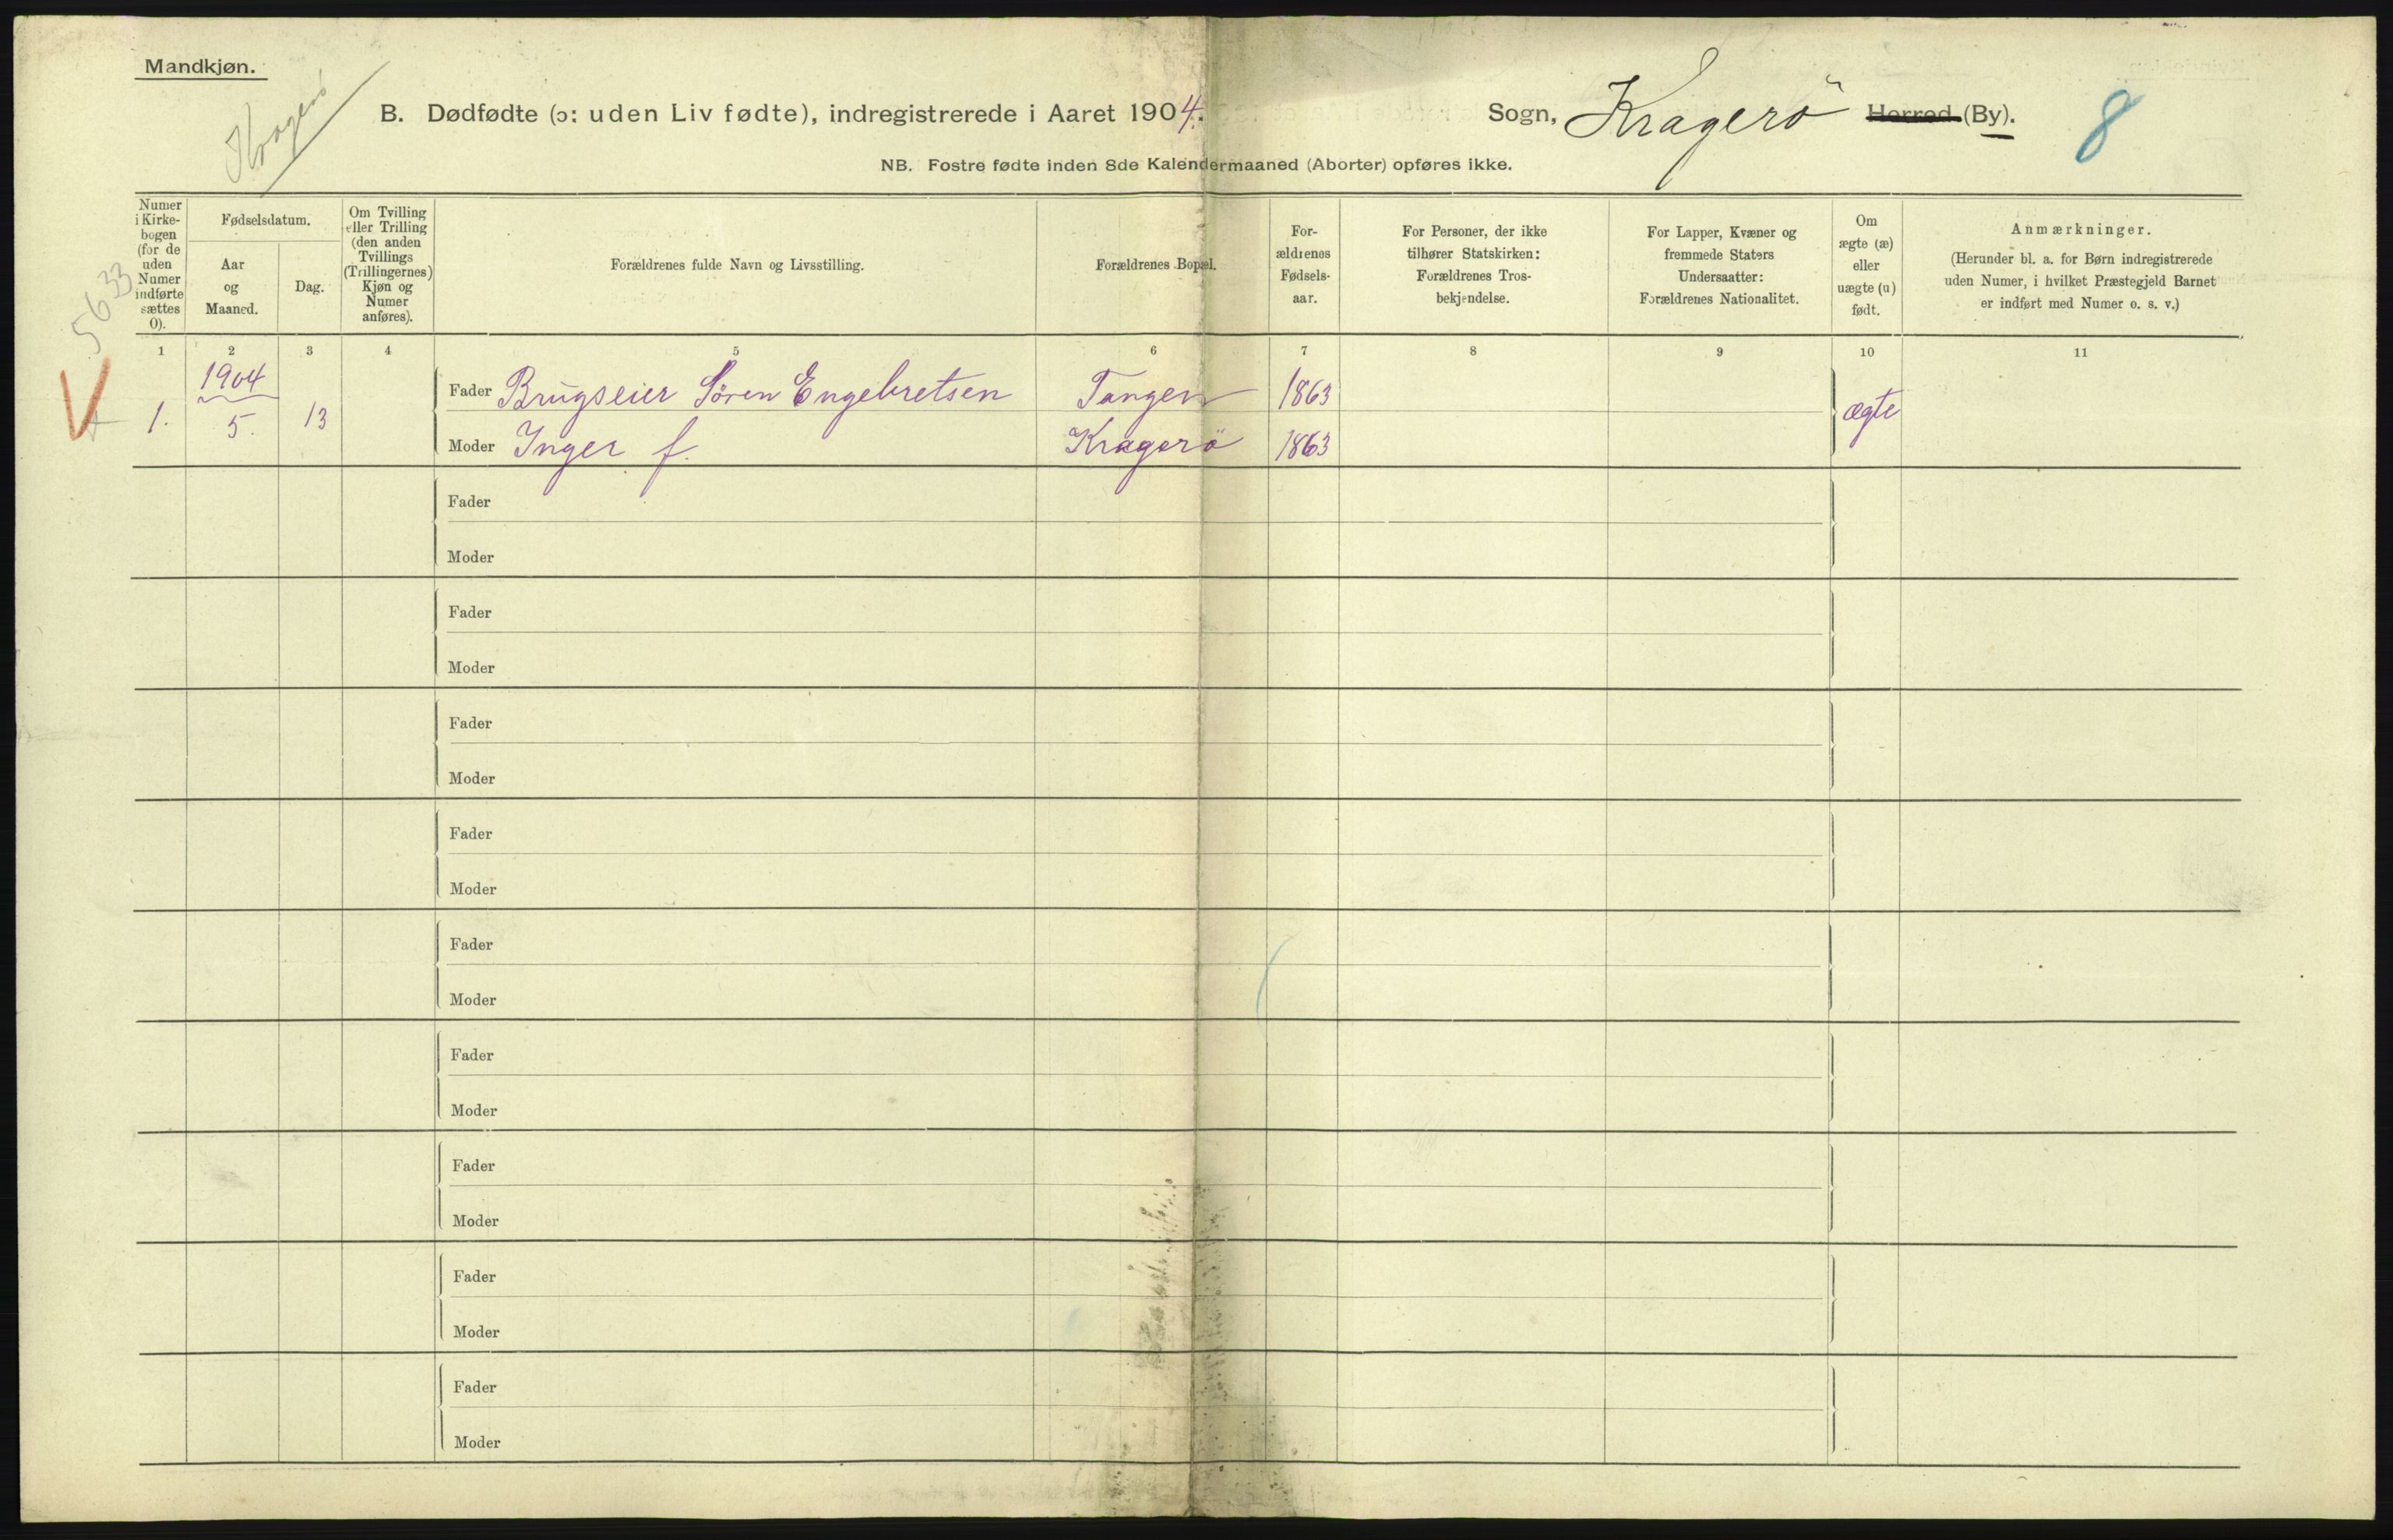 Mandkjøn.
Kragerø
B. Dødfødte (ɔ: uden Liv fødte), indregistrerede i Aaret 1904. Sogn, Kragerö Herred (By). 8
NB. Fostre fødte inden 8de Kalendermaaned (Aborter) opføres ikke.
Numer i Kirke-bogen (for de uden Numer indførte sættes 0).
Fødselsdatum.
Aar og Maaned.
Dag.
Om Tvilling eller Trilling (den anden Tvillings (Trillingernes) Kjøn og Numer anføres).
Forældrenes fulde Navn og Livsstilling.
Forældrenes Bopæl.
For-ældrenes Fødsels-aar.
For Personer, der ikke tilhører Statskirken: Forældrenes Tros-bekjendelse.
For Lapper, Kvæner og fremmede Staters Undersaatter: Forældrenes Nationalitet.
Om ægte (æ) eller uægte (u) født.
Anmærkninger.
(Herunder bl. a. for Børn indregistrerede uden Numer, i hvilket Præstegjeld Barnet er indført med Numer o. s. v.)
5633
1 2 3 4 5 6 7 8 9 10 11
1904
Fader Brugseier Sören Engebretsen Tangen 1863
V 1. 5. 13 ægte
Moder Inger f. Kragerö 1863
Fader
Moder
Fader
Moder
Fader
Moder
Fader
Moder
Fader
Moder
Fader
Moder
Fader
Moder
Fader
Moder
Fader
Moder